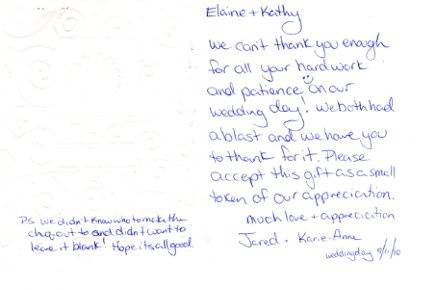 Elaine + Kathy
We can't thank you enough
for all your hard work
and patience on our
wedding day! We both had
a blast and we have you
to thank for it. Please
accept this gift as a small
token of our appreciation.
much love + appreciation
Jared + Karie-Anne
wedding day 9/11/10
PS we didn't know who to make the
chq out to and didn't want to
leave it blank! Hope its all good.